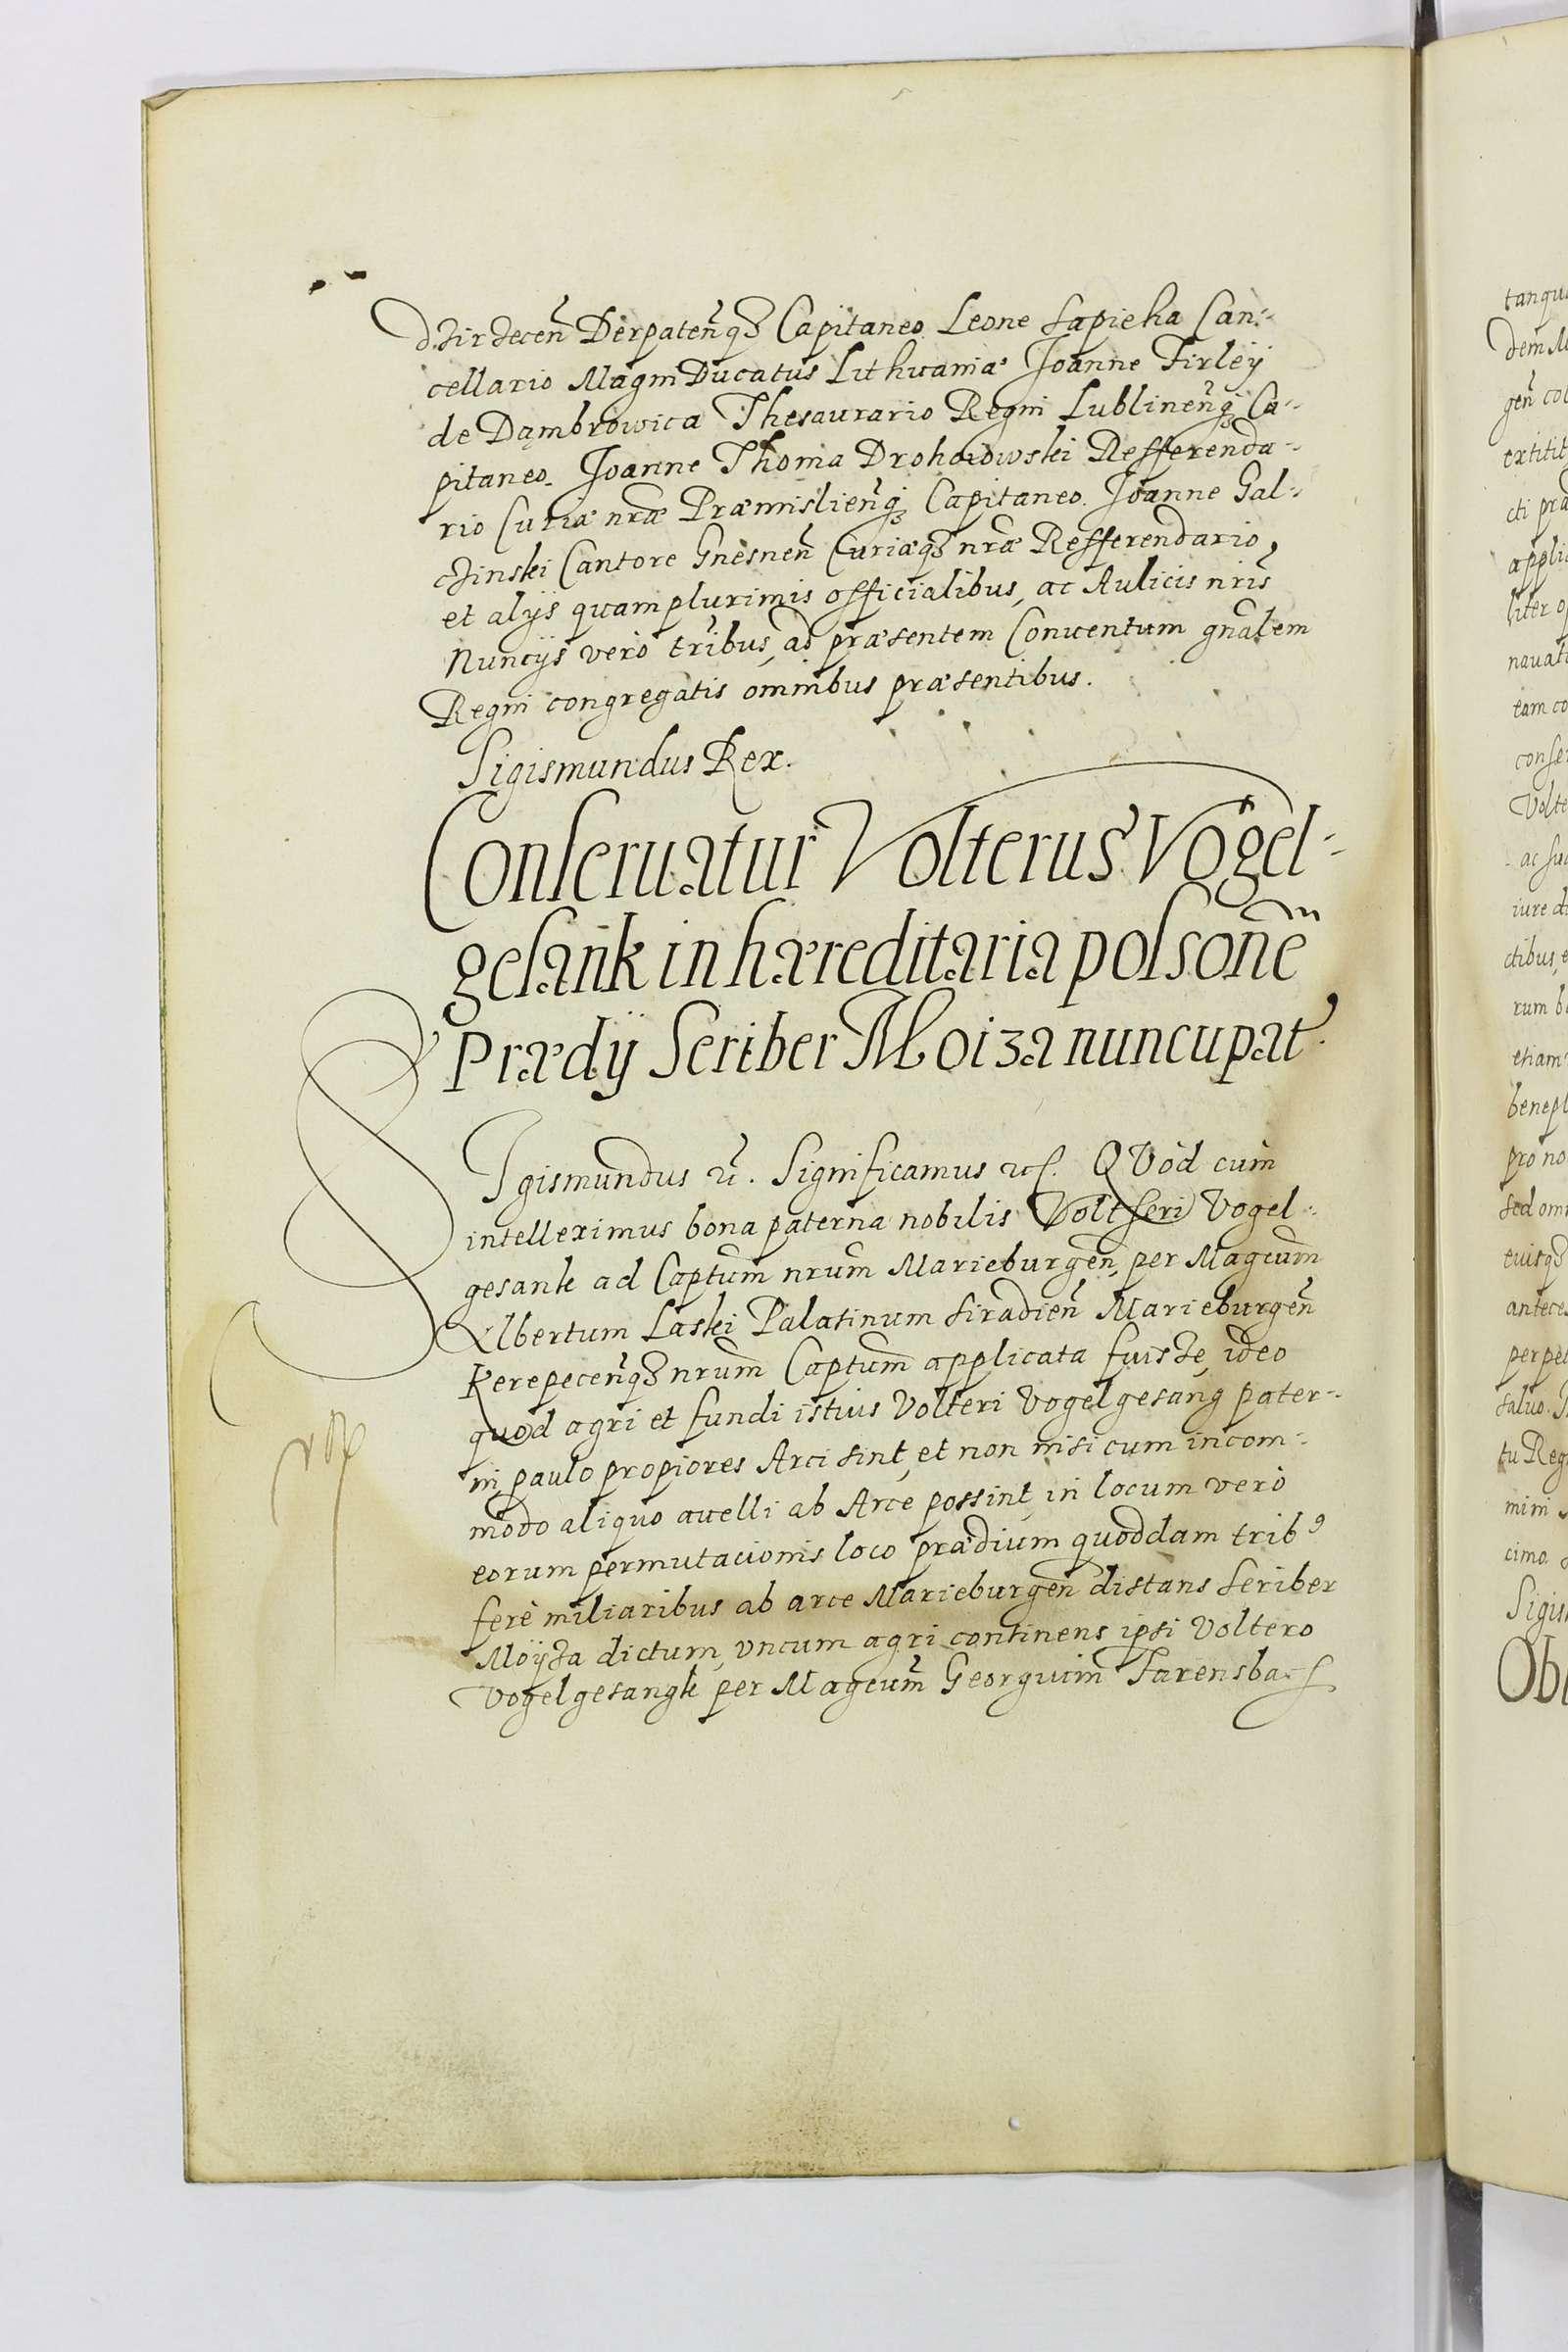 dzirzecen̄ Derpaten̄qȝ Capitaneo. Leone Sapieha Can-
cellario Magni Ducatus Lithuaniæ Joanne Firleÿ
de Dąmbrowica Thesaurario Regni Lublinen̄qȝ Ca-
pitaneo. Joanne Thoma Drohoiowski Refferenda-
rio Curiæ nr̄æ Præmislien̄qȝ Capitaneo. Joanne Gal-
czinski Cantore Gnesnen̄ Curiæqȝ nr̄æ Refferendario,
et alÿs quam plurimis officialibus, ac Aulicis nr̄is
Nuncÿs verò tr̄ibus, ad præsentem Conuentum gn̄alem
Regni congregatis omnibus præsentibus.
Sigismundus Rex.
Conseruatur Volterus Vogel-
gesank in hæreditaria possone͂
Prædÿ Seriber Moiza nuncupat.
SIgismundus ꝛc̄. Significamus ꝛc. QVòd cum
intelleximus bona paterna nobilis Volt*eri* Vogel-
gesank ad Capt̄um nr̄um Marieburgen̄, per Mag̅cum
Albertum Laski Palatinum Siradien̄ Marieburgen̄
Kerepecen̄qȝ nr̄um Capt̄um applicata fuisse, ideo
quod agri et fundi istius Volteri Vogelgesang pater-
ni, paulo propiores Arci sint, et non nisi cum incom-
modo aliquo auelli ab Arce possint, in locum verò
eorum permutacionis loco prædium quoddam tribꝰ
ferè miliaribus ab arce Marieburgen̄ distans Seriber
Moÿsa dictum, vncum agri continens ipsi Voltero
Vogelgesangk per Mag̅cum Georgium Farensbac